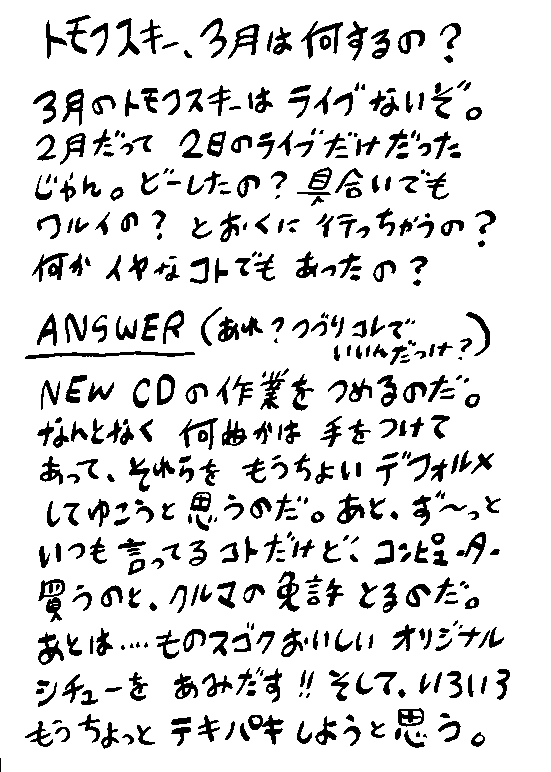 トモフスキー、3月は何するの？
3月のトモフスキーは ライブないぞ。
2月だって 2日のライブだけだった
じゃん。どーしたの？ 具合いでも
ワルイの？ とおくに 行っちゃうの？
何か イヤなコトでも あったの？
ANSWER（あれ？つづりコレで
いいんだっけ？）
NEW CDの作業を つめるのだ。
なんとなく 何曲かは 手をつけて
あって、それらを もうちょい デフォルメ
してゆこうと思うのだ。あと、ず〜っと
いつも 言ってる コトだけど、コンピューター
買うのと、クルマの免許 とるのだ。
あとは‥‥ものスゴクおいしい オリジナル
シチューを あみだす!! そして、いろいろ
もうちょっと テキパキ しようと思う。